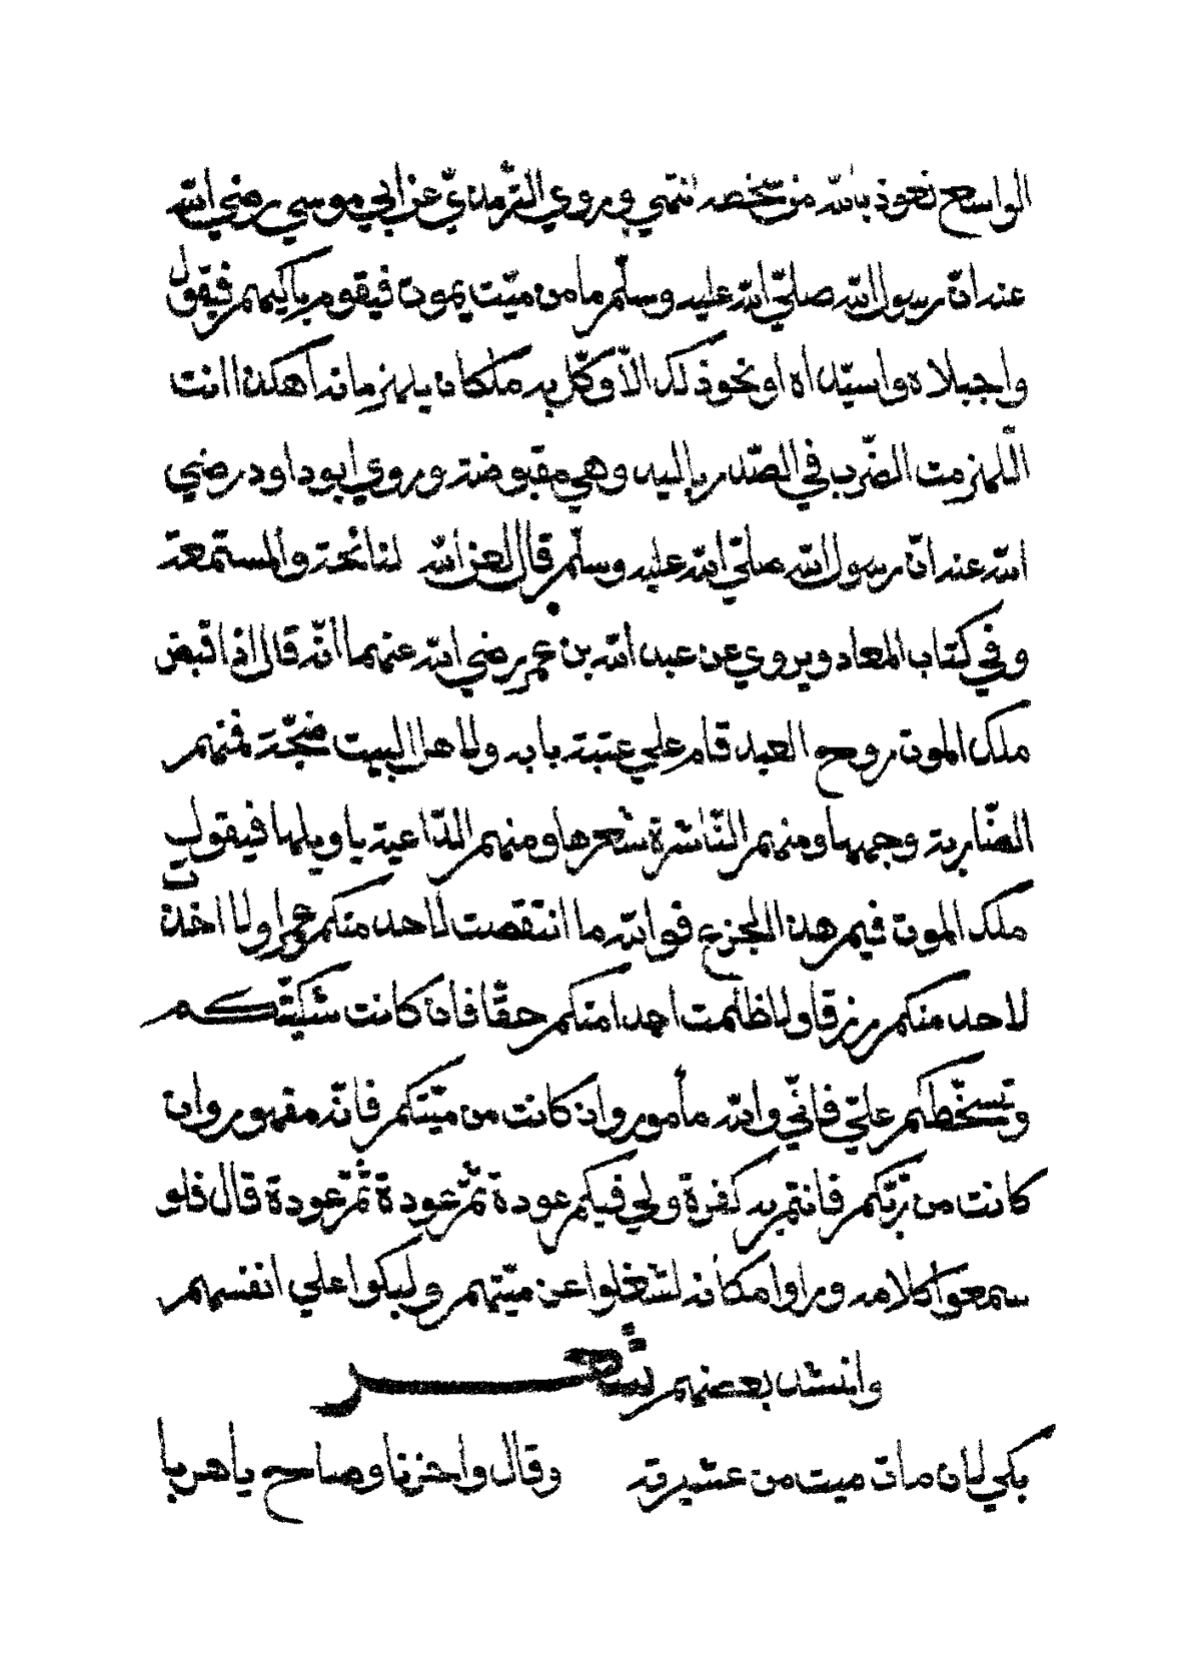 الواسع نعوذ بالله من سخطه انتهي وروي الترمذيّ عن ابي موسي رضي الله
عنه انّ رسول الله صلّي الله عليه وسلّم ما من ميّت يموت فيقوم باكيهم فيقول
واجبلاه واسيّداه او نحو ذلك الّا وكّل به ملكان يلهزمانه أهكذا انت
اللّهزمت الضّرب في الصّدر باليد وهي مقبوضة وروي ابو داود رضي
الله عنه انّ رسول الله صلّي الله عليه وسلّم قال لعن الله لنائحة والمستمعة
وفي كتاب المعاد ويروي عن عبد الله بن عمر رضي الله عنهما انّه قال اذا قبض
ملك الموت روح العبد قام علي عتبة بابه ولاهل البيت ضجّة فمنهم
الضّاربة وجهها ومنهم النّاشرة شعرها ومنهم الدّاعية ياويلها فيقول
ملك الموت فيم هذا الجزع فوالله ما انتقصت لاحد منكم عمرا ولا اخذت
لاحد منكم رزقا ولا ظلمت احدا منكم حقّا فان كانت شكيّتكم
وتسخّطكم عليّ فانّي والله مأمور وان كانت من ميّتكم فانّه مقهور وان
كانت من ربّكم فانتم به كفرة ولي فيكم عودة ثمّ عودة ثمّ عودة قال فلو
سمعوا كلامه وراوا مكانه لشغلوا عن ميّتهم وليبكوا علي انفسهم
وانشد بعضهم شعر
بكي لان مات ميت من عشيرته وقال واحزنا وصاح ياهربا